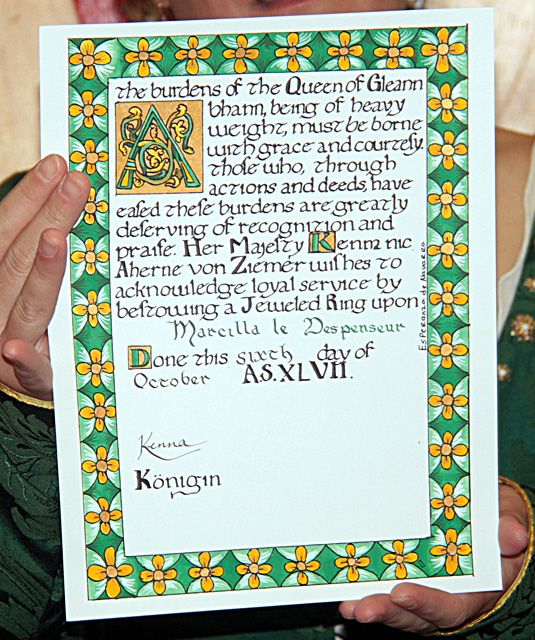 the burdens of the Queen of Gleann
A bhann, being of heavy
weight, must be borne
with grace and courtesy.
those who, through
actions and deeds, have
eased these burdens are greatly
deserving of recognition and
praise. Her Majesty Kenna nic
Aherne von Ziemer wishes to
acknowledge loyal service by
bestowing a Jeweled Ring upon
Marcilla le Despenseur
Done this sixth day of
October A.S.XLVII.
Kenna
Königin
Esperanza de Navarra